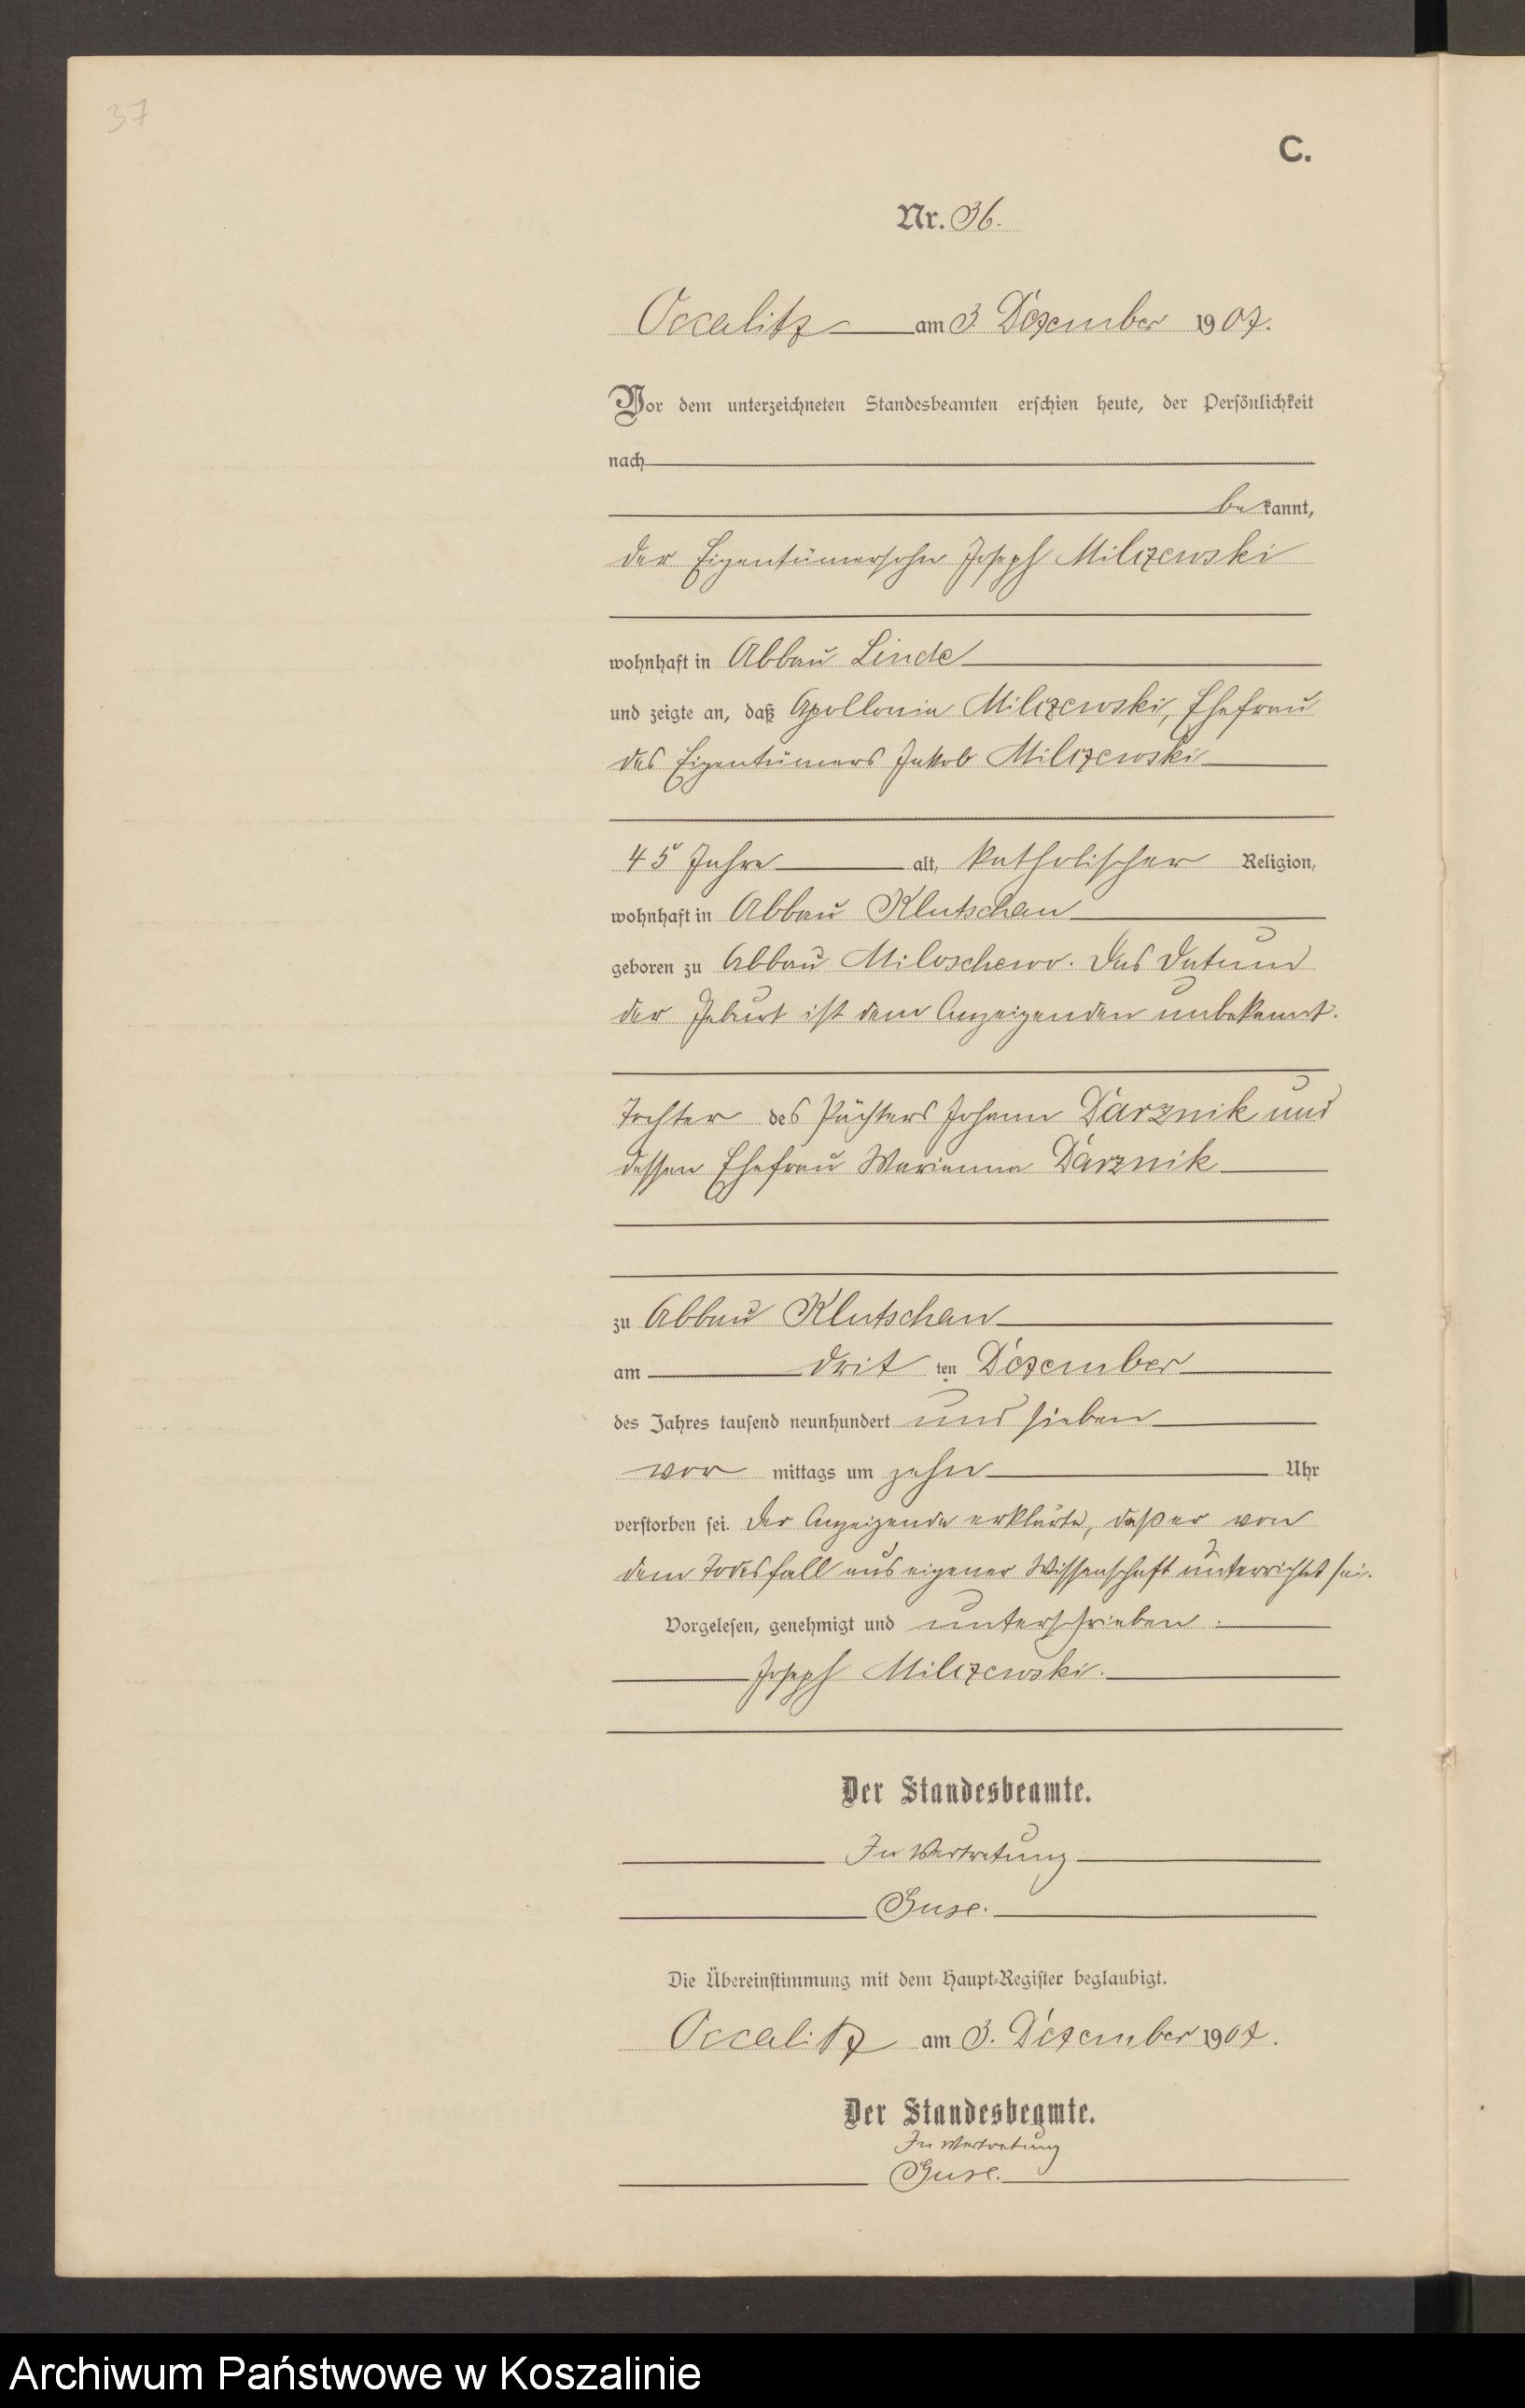 37
C.
Nr. 36.
Occalitz am 3. Dezember 1907.
Vor dem unterzeichneten Standesbeamten erschien heute, der Persönlichkeit
nach
bekannt,
der Eigentümersohn Joseph Milczewski
wohnhaft in Abbau Linde
und zeigte an, daß Apollonia Milczewski, Ehefrau
des Eigentümers Jakob Milczewski
45 Jahre alt, katholischer Religion,
wohnhaft in Abbau Klutschau
geboren zu Abbau Miloschewo. Das Datum
der Geburt ist dem Anzeigenden unbekannt.
Tochter des Pächters Johann Darznik und
dessen Ehefrau Marianna Darznik
zu Abbau Klutschau
am dritten Dezember
des Jahres tausend neunhundert und sieben
vor mittags um zehn Uhr
verstorben sei. Der Anzeigende erklärte, daß er von
dem Todesfall aus eigener Wissenschaft unterrichtet sei.
Vorgelesen, genehmigt und unterschrieben.
Joseph Milczewski.
Der Standesbeamte.
In Vertretung
Guse.
Die Übereinstimmung mit dem Haupt-Register beglaubigt.
Occalitz am 3. Dezember 1907.
Der Standesbeamte.
In Vertretung
Guse.
Archiwum Państwowe w Koszalinie